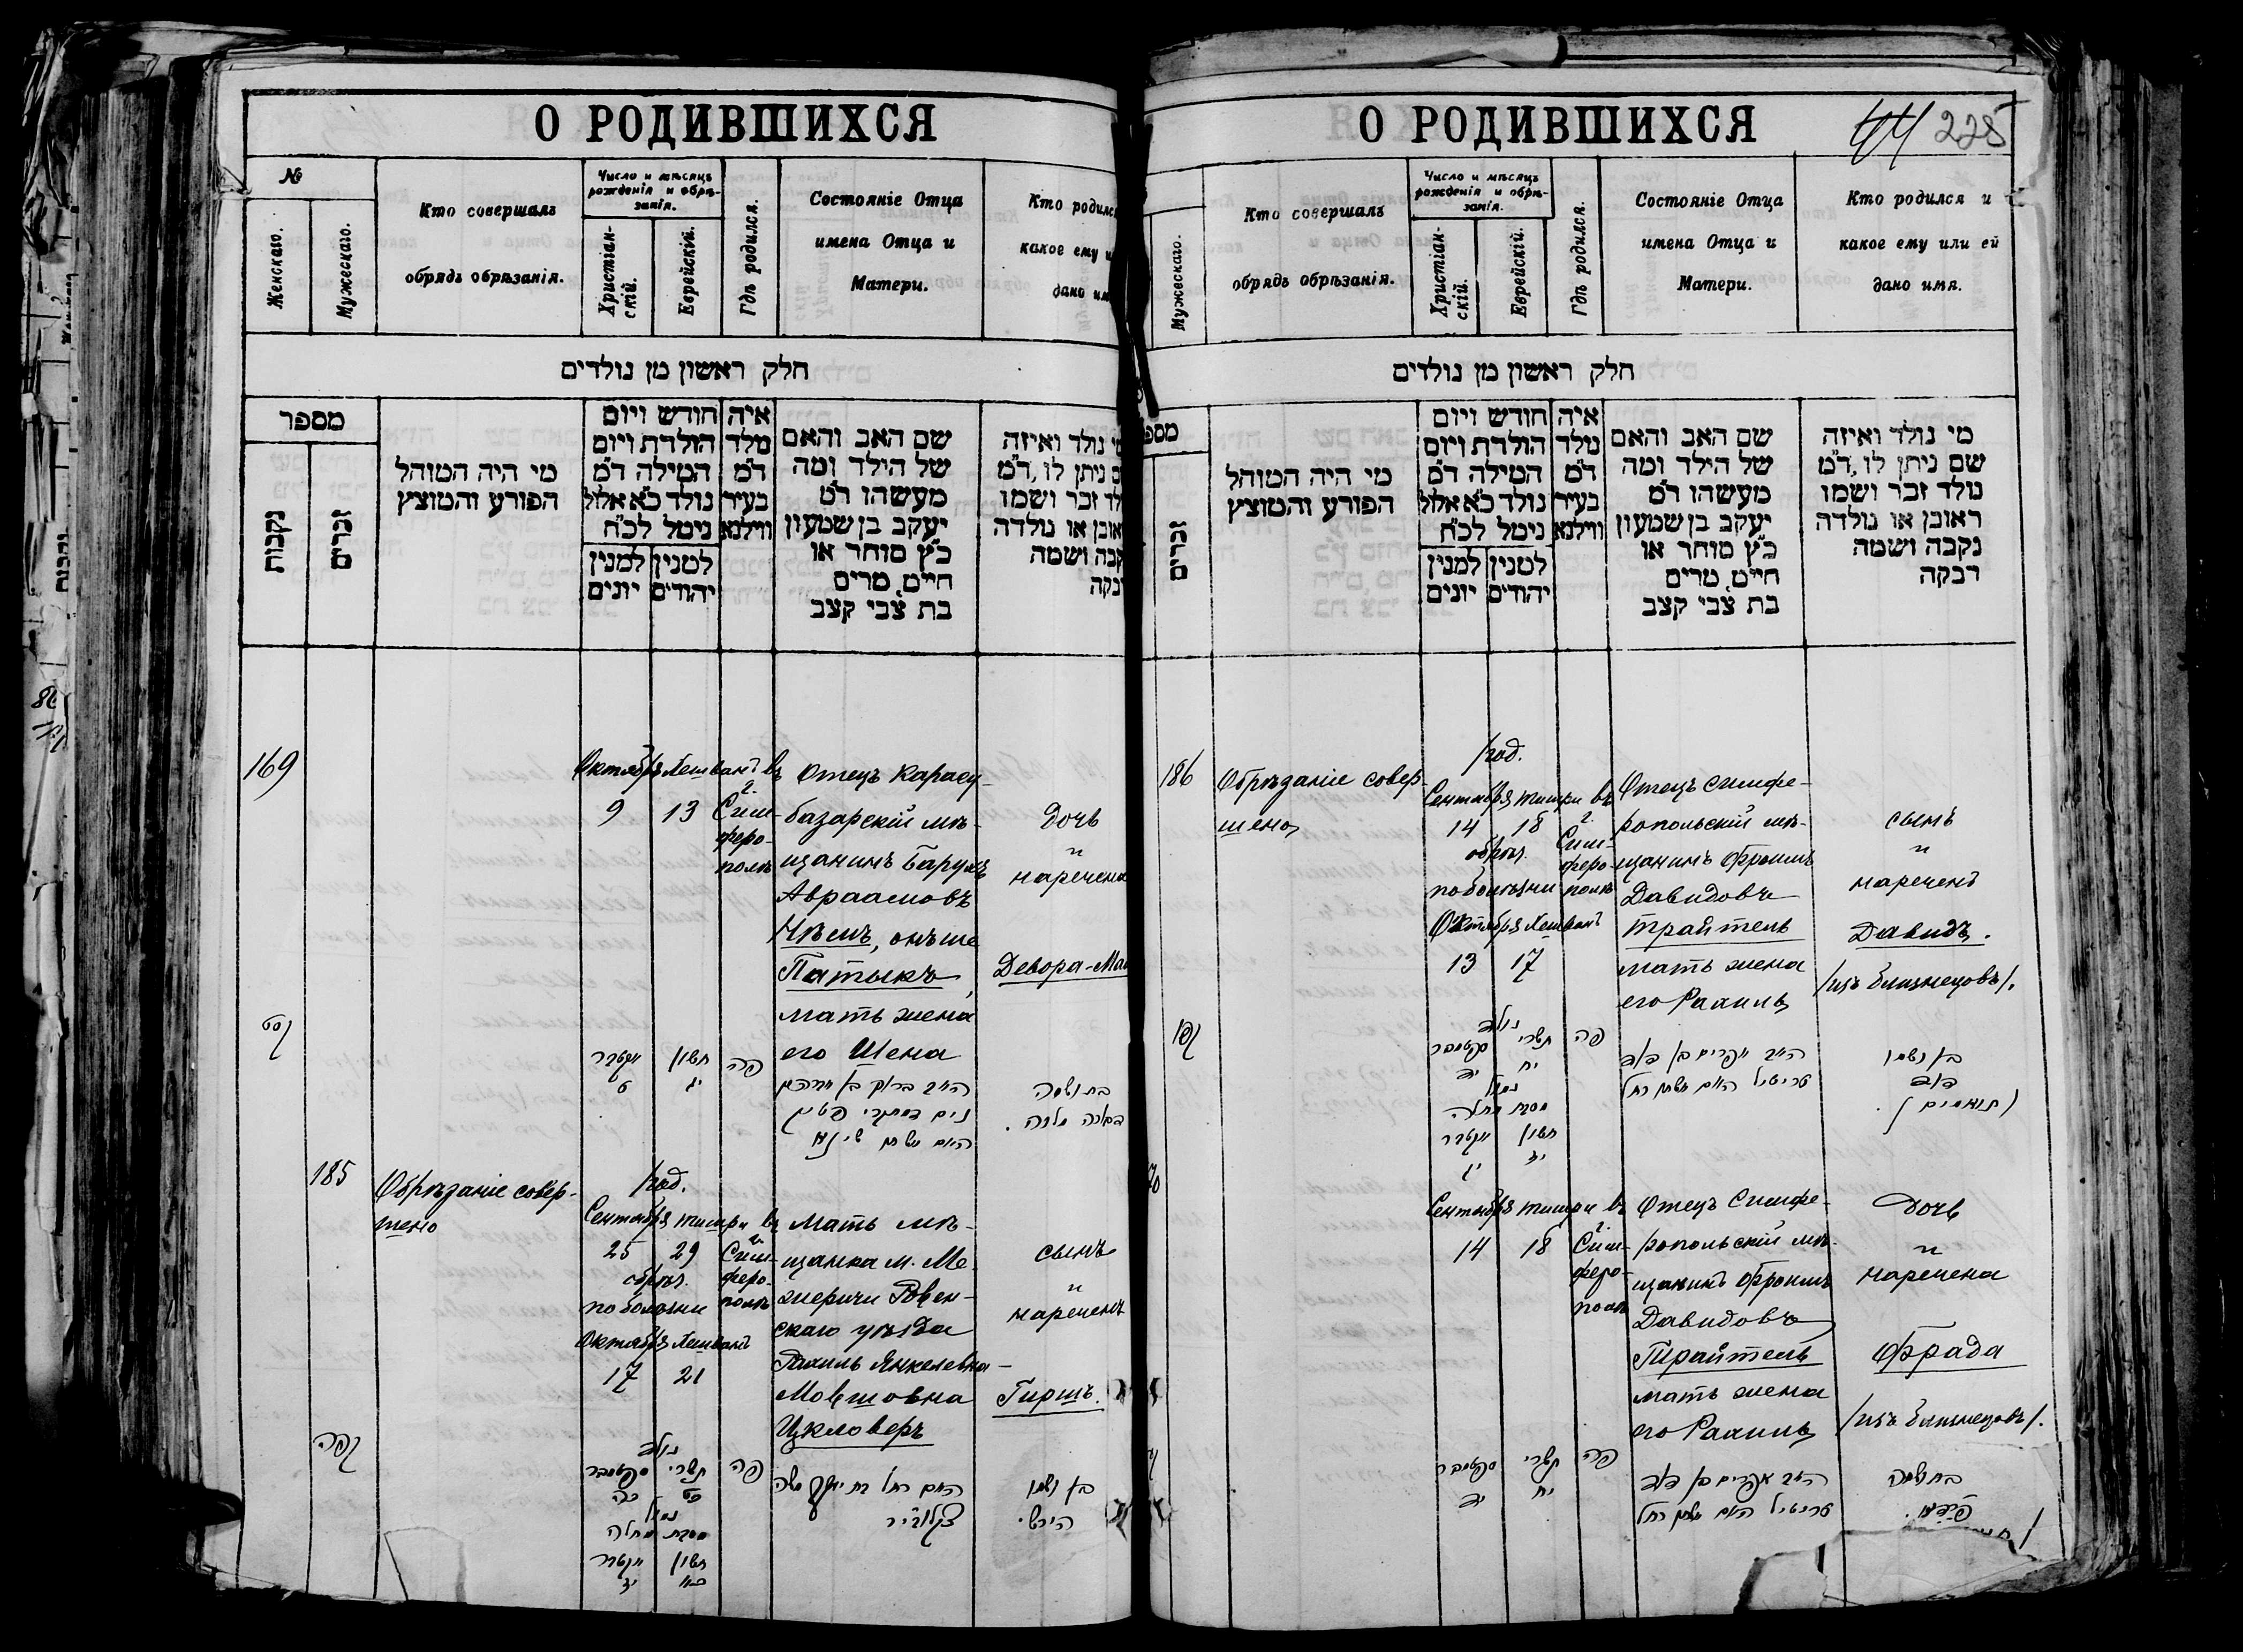 О РОДИВШИХСЯ
№
Женскаго.
Мужескаго.
Кто совершалъ
обрядъ обрѣзанія.
Число и мѣсяцъ
рожденія и обрѣ-
занія.
Христіан-
скій.
Еврейскій.
Гдѣ родился.
Состояніе Отца
имена Отца и
Матери.
Кто родилс
какое ему и
дано им
חלק ראשון מן נולדים
מספר
נקבות
זכרים
מי היה המוהל
הפורע והמוצץ
חודש ויום
הולדת ויום
המילה ד״מ
נולד כ״א אלול
נימל לכ״ח
למנין יהודים
למנין יונים
איה
נולד
ד״מ
בעיר
ווילנא
שם האב והאם
של הילד ומה
מעשהו ד״מ
יעקב בן שמעון
כ״ץ סוחר או
חייט, מרים
בת צבי קצב
נולד ואיזה
ניתן לו, ד״מ
זכר ושמו
או נולדה
ושמה
169
Октябрь Хешванъ въ
9 13
г.
Сим-
феро-
полѣ
Отецъ Карасу-
базарскій мѣ-
щанинъ Барухъ
Авраамовъ
Нѣемъ, онъ же
Патыкъ,
мать жена
его Шена
Дочь
и
наречена
Девора-Ма
קסט
אקטבר חשון
ט יג
פה
בת ושמה
דבורה מלכה.
185
Обрѣзаніе совер-
шено
/род.
Сентября тишри въ
25 29
г.
Сим-
феро-
полѣ
обрѣз.
по болѣзни
Октября Хешванъ
17 21
Мать мѣ-
щанка м. Ме-
жеричи Ровен-
скаго уѣзда
Рахиль Янкелевна-
Мовшовна
Цкловеръ
сынъ
и
нареченъ
Гиршъ.
קפה
נולד
תשרי
כט כה
נמול
מסבת מחלה
אקטבר חשון
פה
בן ושמו
הירש.
О РОДИВШИХСЯ
44 228
Мужескаго.
Кто совершалъ
обрядъ обрѣзанія.
Число и мѣсяцъ
рожденія и обрѣ-
занія.
Христіан-
скій.
Еврейскій.
Гдѣ родился.
Состояніе Отца
имена Отца и
Матери.
Кто родился и
какое ему или ей
дано имя.
חלק ראשון מן נולדים
זכרים
מי היה המוהל
הפורע והמוצץ
חודש ויום
הולדת ויום
המילה ד״מ
נולד כ״א אלול
נימל לכ״ח
למנין יהודים
למנין יונים
איה
נולד
ד״מ
בעיר
ווילנא
שם האב והאם
של הילד ומה
מעשהו ד״מ
יעקב בן שמעון
כ״ץ סוחר או
חייט, מרים
בת צבי קצב
מי נולד ואיזה
שם ניתן לו, ד״מ
נולד זכר ושמו
ראובן או נולדה
נקבה ושמה
רבקה
186
Обрѣзаніе совер-
шено
/род.
Сентября тишри въ
14 18
г.
Сим-
феро-
полѣ
обрѣз.
по болѣзни
Октября Хешванъ
13 17
Отецъ Симфе-
ропольскій мѣ-
щанинъ Фроимъ
Давидовъ
Трайтель
мать жена
его Рахиль
сынъ
и
нареченъ
Давидъ.
/изъ близнецовъ/.
קפו
נולד
תשרי
יח יד
נמול
מסבת מחלה
אקטבר חשון
יג יז
פה
אפרים בן דוד
טרייטיל האם אשתו רחל
בן ושמו
דוד
(תאומים).
Сентября тишри въ
14 18
г.
Сим-
феро-
полѣ
Отецъ Симфе-
ропольскій мѣ-
щанинъ Фроимъ
Давидовъ
Трайтель
мать жена
его Рахиль
Дочь
и
наречена
Фрада
/изъ близнецовъ/.
תשרי
יח יד
פה
אפרים בן דוד
טרייטיל האם אשתו רחל
בת ושמה
פראדא.